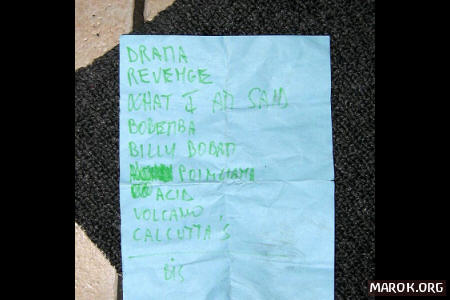 DRAMA
REVENGE
WHAT I AM SAID
BODEMBA
BILLY BOBAM
POIMCIAMA
ACID
VOLCANO
CALCUTTA S
BIS
MAROK.ORG